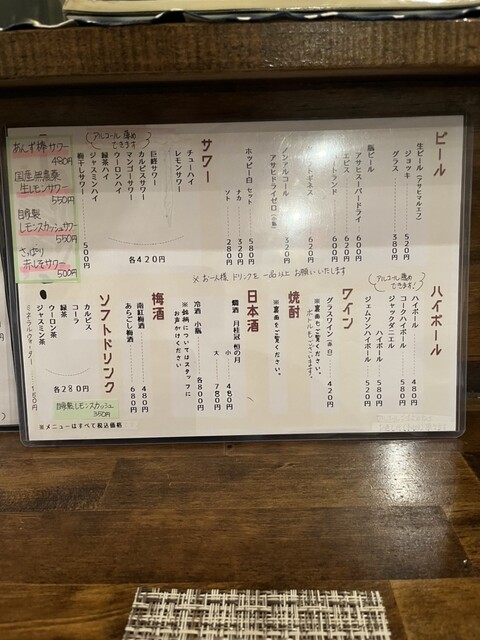 ビール
生ビール（アサヒマルエフ）
ジョッキ 520円
グラス 380円
瓶ビール
アサヒスーパードライ 600円
エビス 620円
ハートランド 620円
ギネス 620円
ノンアルコール
アサヒドライゼロ（小瓶） 320円
ホッピー白 セット 520円
ナカ 320円
ソト 280円
サワー
チューハイ
レモンサワー
巨峰サワー
カルピスサワー
マンゴーサワー
ウーロンハイ
緑茶ハイ
ジャスミンハイ
各420円
梅干しサワー 500円
アルコール薄めできます
あんず棒サワー
480円
国産無農薬
生レモンサワー
550円
自家製
レモンスカッシュサワー
550円
さっぱり
赤しそサワー
500円
※お一人様 ドリンクを一品以上お願いいたします
アルコール薄めできます!
ハイボール
ハイボール 480円
コークハイボール 580円
ジャックダニエル
ハイボール 580円
ジェムソンハイボール 520円
ワイン
グラスワイン（赤 白） 420円
※裏面もご覧ください。
ボトルもございます。
焼酎
※裏面をご覧ください。
日本酒
燗酒 月桂冠 恒の月
小 460円
大 780円
冷酒 小瓶 各800円
※銘柄についてはスタッフに
お声かけください
梅酒
南紅梅酒 480円
あらごし梅酒 680円
ソフトドリンク
カルピス
コーラ
緑茶
ウーロン茶
ジャスミン茶
各280円
ミネラルウォーター
自家製レモンスカッシュ
350円
※メニューはすべて税込価格